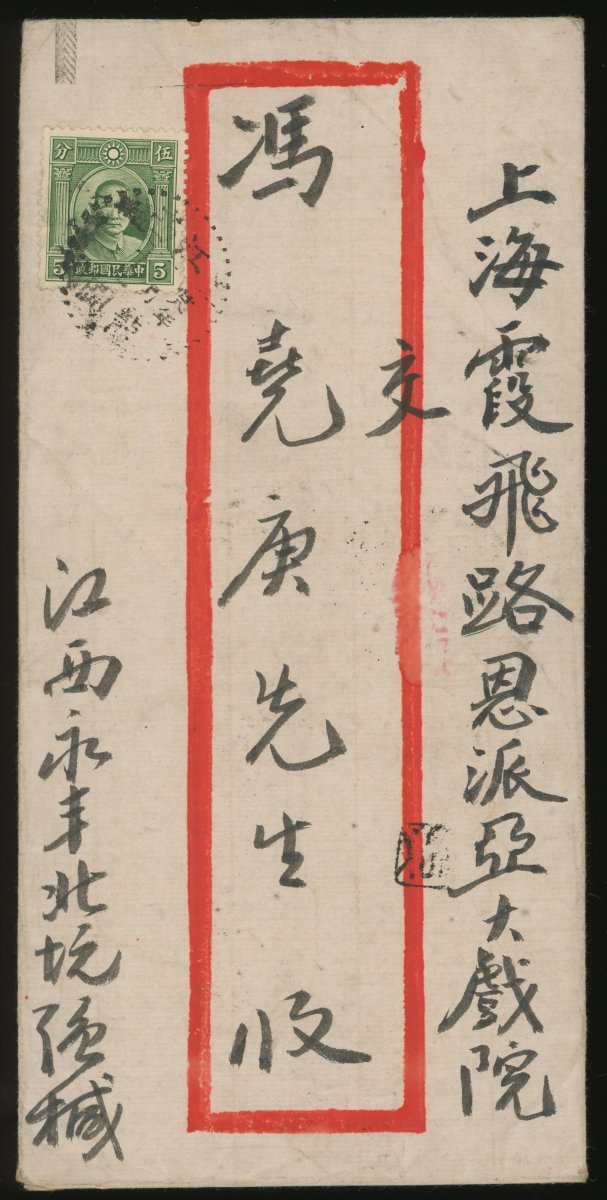 上海霞飛路恩派亞大戲院
交
馮堯庚先生 收
伍 分
5 中華民國郵政 5
江
江西永丰北坑強椷